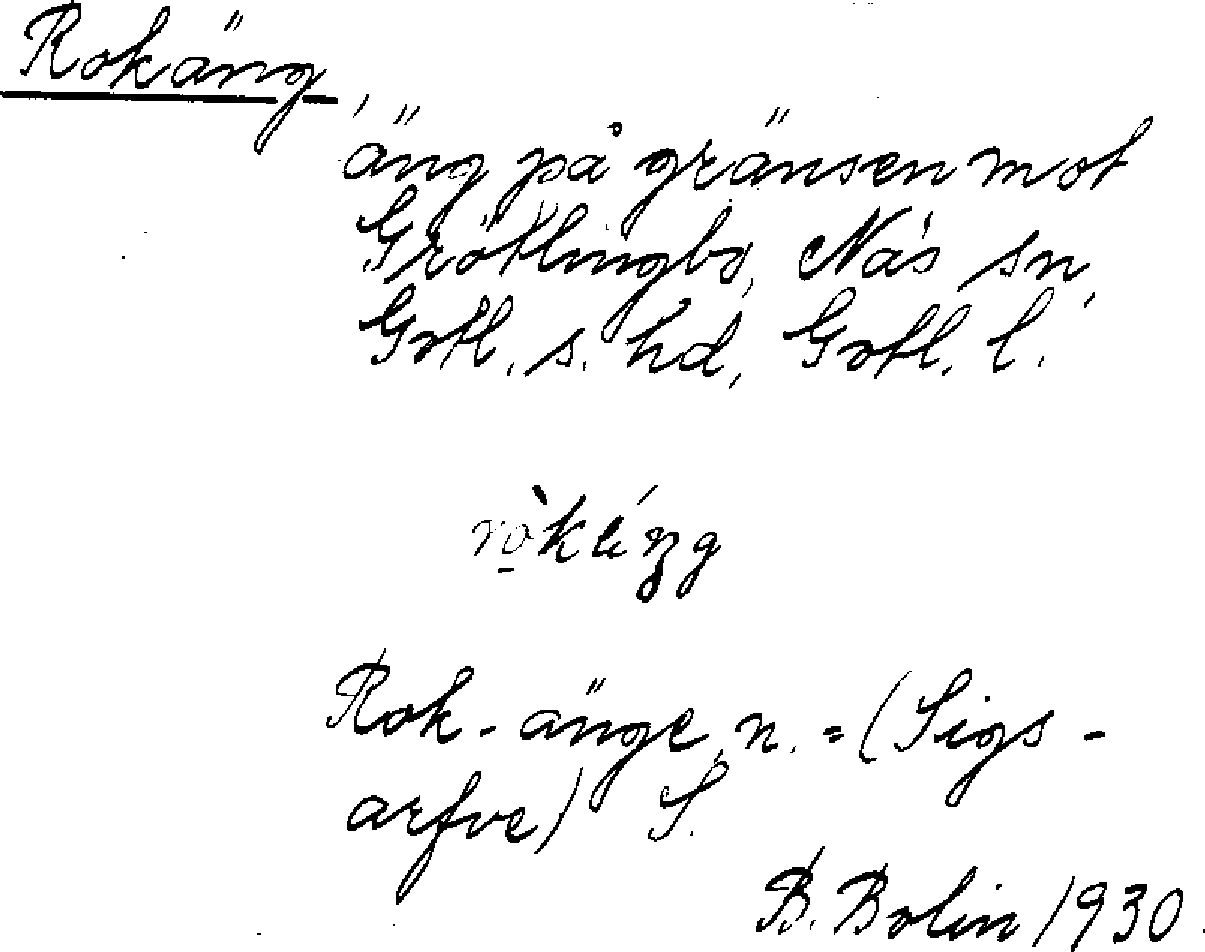 Rokäng,
äng på gränsen mot
Grötlingbo, Näs sn,
Gotl. s. hd, Gotl. l.
Rok-änge, n. = (Sigs-
arfve) S.
B. Bolin 1930.